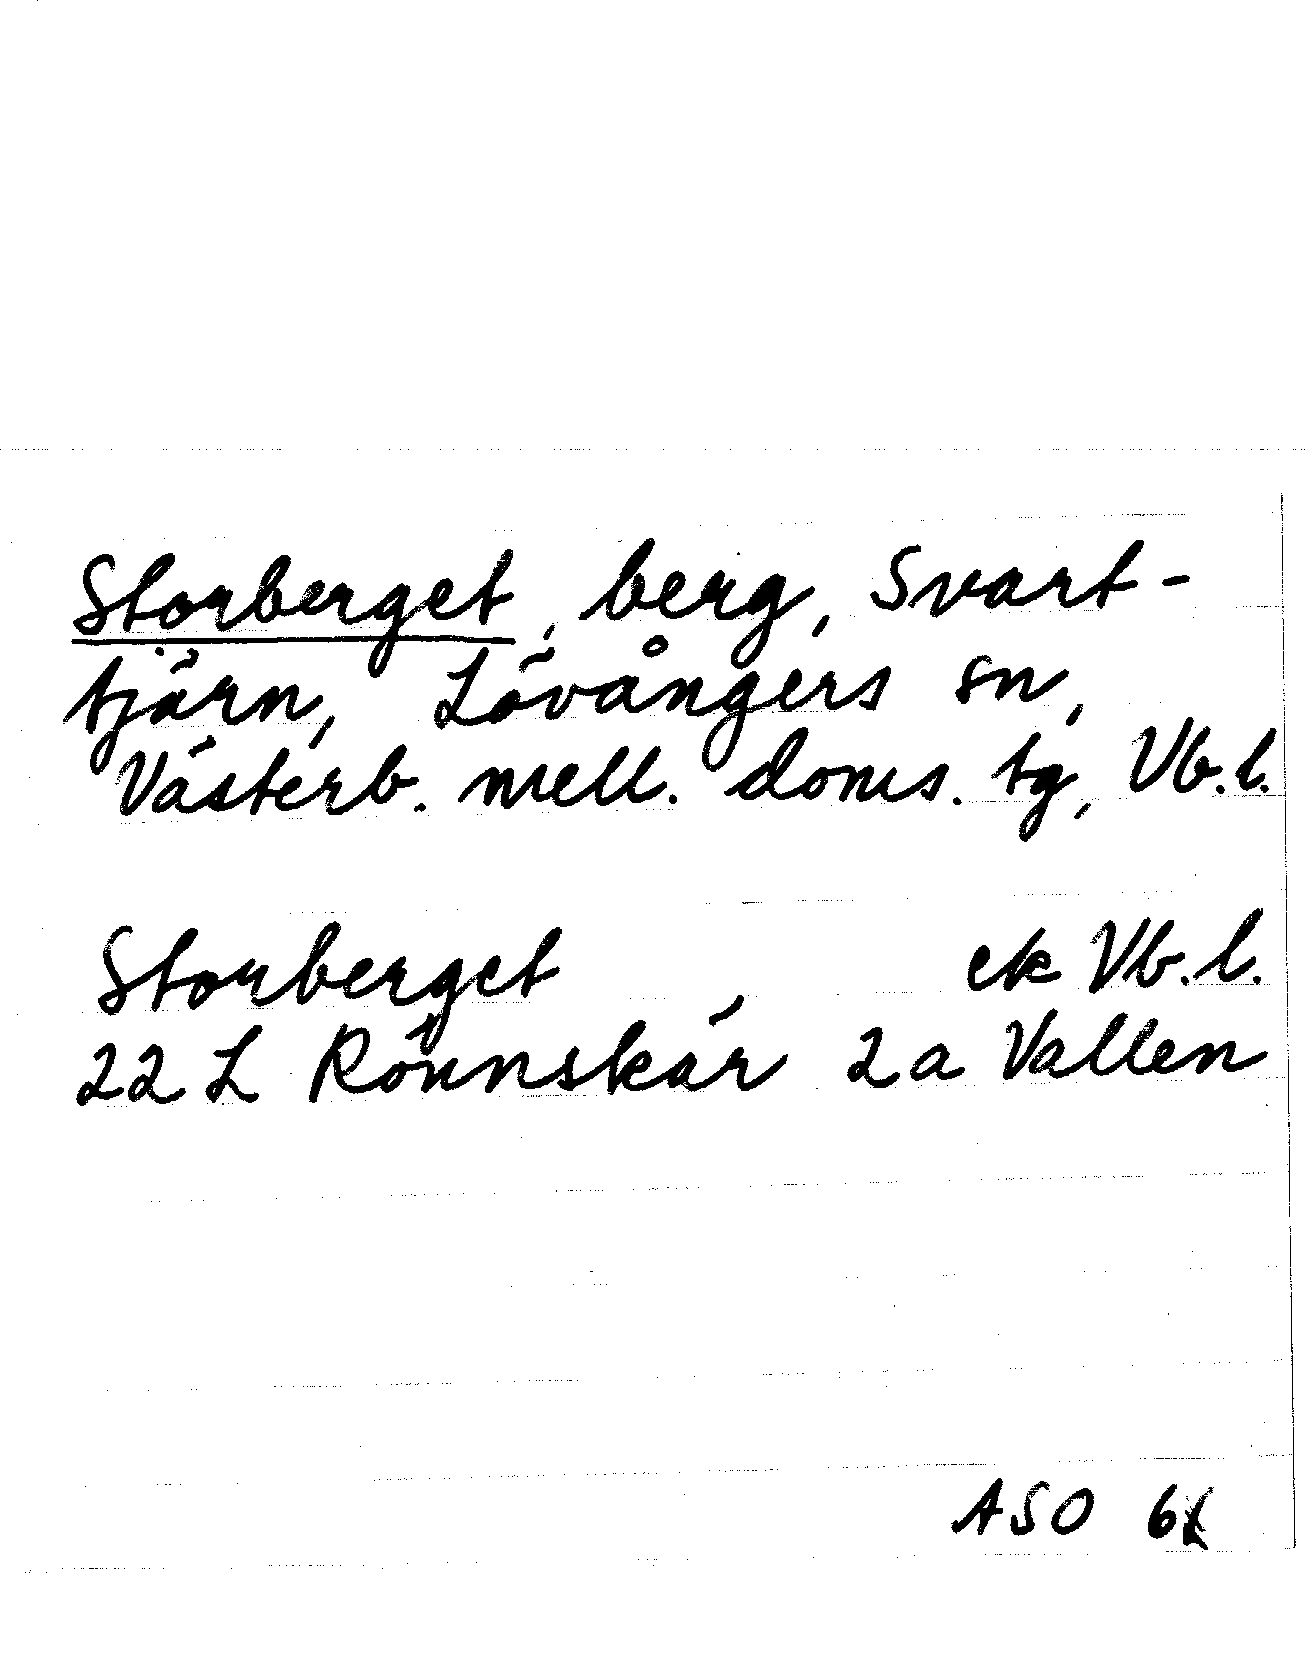 Storberget, berg, Svart-
tjärn, Lövångers sn,
Västerb. mell. doms. tg, Vb.l.
Storberget ek Vb.l.
22 L Rönnskär 2a Vallen
ASO